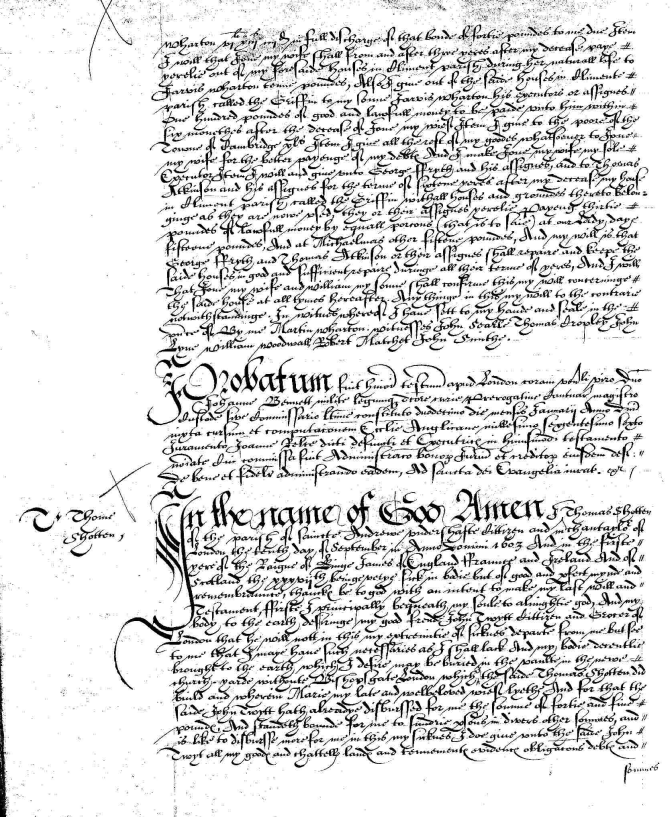 wharton in full discharge of that bonde of fortie poundes to me due Item
I will that Jone my wife shall from and after three yeres after my decease paye
yerelie out of my foresaide houses in Climent parish during her naturall life to
Jarvis wharton tenne poundes, Also I give out of the saide houses in Climente
parish called the Griffin to my sonne Jarvis wharton his executors or assignes
One hundred poundes of good and lawfull money to be paide unto him within
six monethes after the decease of Jone my wief Item I give to the poore of the
Towne of Item I give all the rest of my goodes whatsoever to Jone
my wife for the better payenge of my debte And I make Jone my wife my sole
Executor Item I will and give unto George ffryth and his assignes, and to Thomas
Atkinson and his assignes for the terme of yeres after my decease my house
in Climent parish called the Griffin withall houses and groundes thereto belon
ginge as they are nowe used they or their assignes yerelie payeng thirtie
poundes of lawfull money by equall porcons (that is to saie) at our Lady daye
fifteene poundes, And at Michaelmas other fiftene poundes, And my will is that
George ffryth and Thomas Atkinson or their assignes shall repaire and keepe the
saide houses in good and sufficient repaire duringe all their terme of yeres, And I will
That Jone my wife and william my sonne shall confirme this my will concerninge
the saide house at all tymes hereafter. Any thinge in this my will to the contrarie
notwithstandinge. In witnes whereof I have sett to my hande and seale in the
pnce of By me Martin wharton. witnesses John Thomas John
william woodwall Robert Matchet John Smithe.
Probatum fuit hmoi testum apud London coram venli viro Dno
Johanne Bennett milite legum dcore curie Prerogative Cantuar magistro
Custode sive Commissario ltime constituto duodecimo die mensis Januarij Anno Dni
iuxta cursum et computaconem Ecclie Anglicane millesimo sexcentesimo sexto
Juramento Joanne Relce dicti defuncti et Executricis in hmoi testamento
noiate Cui commissa fuit Administraco bonorum iurium et creditorum eiusdem defti
De bene et fidelr administrando eadem, Ad sancta dei Evangelia iurat.
T Thome
Shotten
In the name of God Amen I Thomas Shotten
of the parish of saincte Androwe undershafte Cittizen and of
London the tenth day of September in Anno Domini 1603 And in the firste
yere of the Raigne of Kinge James of England ffraunce and Ireland And of
Scotland the xxxvijth beinge sick in bodie but of good and pfect mynde and
remembraunce, thancke be to god with an intent to make my last will and
Testament, ffirste I principally bequeath my soule to almightie god, And my
body to the earth desiringe my good frend John Twytt Cittizen and Grocer of
London that he will nott in this my extremitie of sicknes departe from me but see
to me that I maye have such necessaries as I shall lack And my bodie decentlie
brought to the earth which I desire may be buried in the vaulte in the newe
church yarde without Bishopsgate London which the saide Thomas Shotten did
build and wherein Marie my late and welbeloved wief lyeth And for that the
saide John Twytt hath alreadye disbursed for me the somme of fortie and five
poundes, And standeth bounde for me to sundrie psons in divers other sommes, and
is like to disburse more for me in this my sicknes, I doe give unto the saide John
Twytt all my goodes and chattells landes and tennements evidences obligacons debts and
sommes